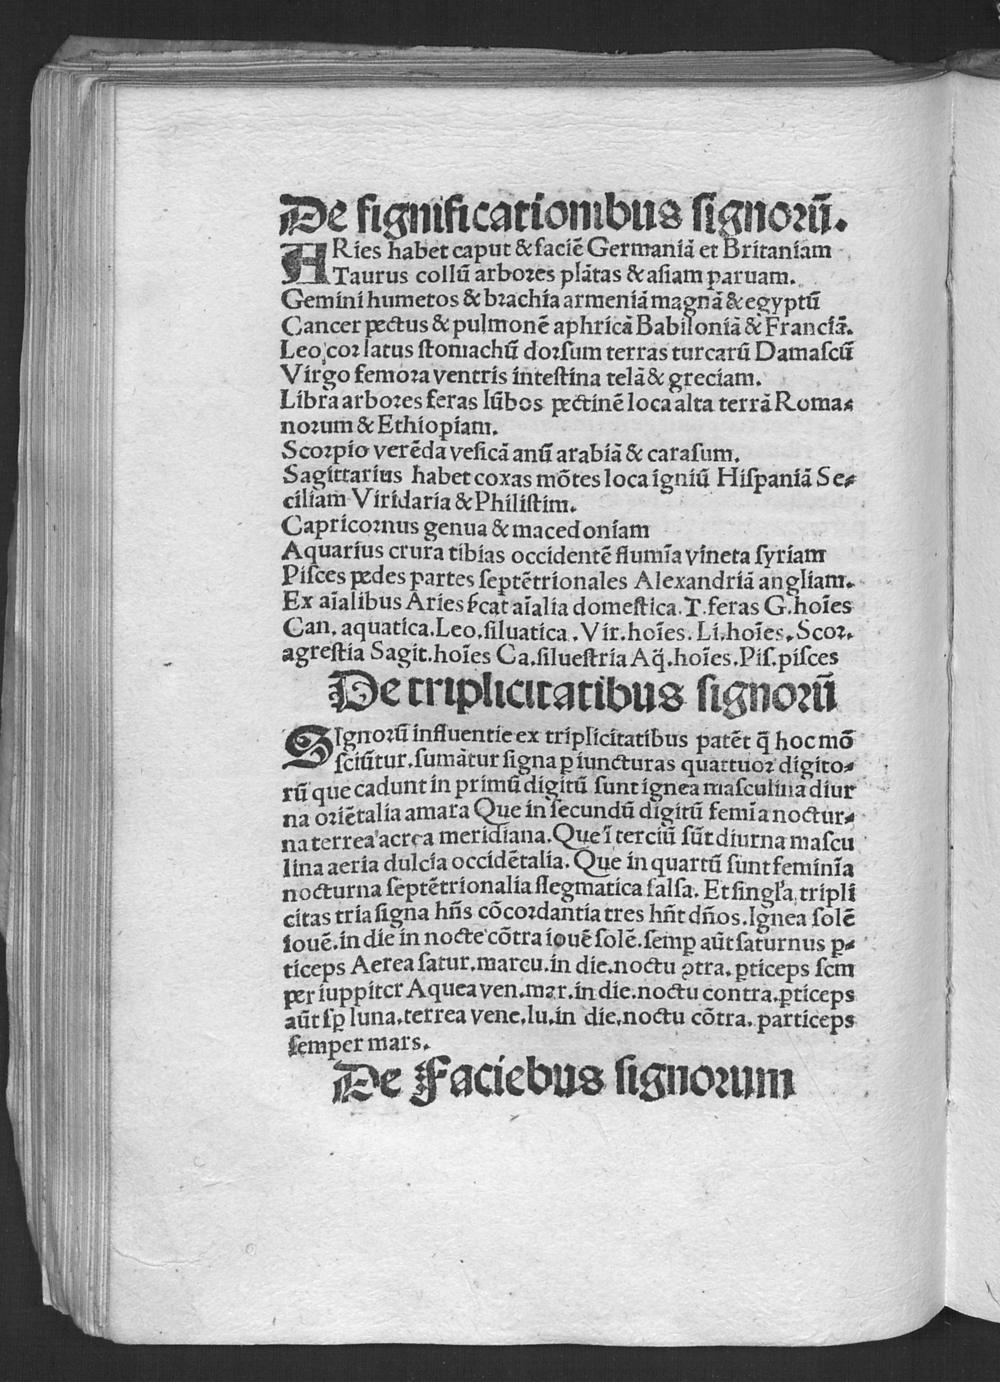 De ſignificationibus ſignorū.
ARies habet caput & faciē Germaniā et Britaniam
Taurus collū arbores plātas & aſiam paruam.
Gemini humeros & brachia armeniā magnā & egyptū
Cancer pectus & pulmonē aphricā Babiloniā & Franciā.
Leo cor latus ſtomachū dorſum terras turcarū Damaſcū
Virgo femora ventris inteſtina telā & greciam.
Libra arbores feras lūbos pectinē loca alta terrā Roma⸗
norum & Ethiopiam.
Scorpio verēda veſicā anū arabiā & caraſum.
Sagittarius habet coxas mōtes loca igniū Hiſpaniā Se⸗
ciliam Viridaria & Philiſtim.
Capricornus genua & macedoniam
Aquarius crura tibias occidentē flumīa vineta ſyriam
Piſces pedes partes ſeptētrionales Alexandriā angliam.
Ex aīalibus Aries ſcat aīalia domeſtica. T. feras G. hoīes
Can. aquatica. Leo. ſiluatica. Vir. hoīes. Li. hoīes. Scor.
agreſtia Sagit. hoīes Ca. ſilueſtria Aq̄. hoīes. Piſ. piſces
De triplicitatibus ſignorū
SIgnorū influentie ex triplicitatibus patēt q̄ hoc mō
ſciūtur. ſumātur ſigna p iuncturas quattuor digito⸗
rū que cadunt in primū digitū ſunt ignea maſculina diur
na oriētalia amara Que in ſecundū digitū femīa noctur⸗
na terrea acrea meridiana. Que ī terciū ſūt diurna maſcu
lina aeria dulcia occidētalia. Que in quartū ſunt feminīa
nocturna ſeptētrionalia flegmatica ſalſa. Et ſingl'a tripli
citas tria ſigna hn̄s cōcordantia tres hn̄t dn̄os. Ignea ſolē
iouē. in die in nocte cōtra iouē ſolē. ſemꝑ aūt ſaturnus ꝑ⸗
ticeps Aerea ſatur. marcu. in die. noctu ꝯtra. ꝑticeps ſem
per iuppiter Aquea ven. mar. in die. noctu contra. ꝑticeps
aūt ſꝑ luna. terrea vene. lu. in die. noctu cōtra. particeps
ſemper mars.
De Faciebus ſignorum